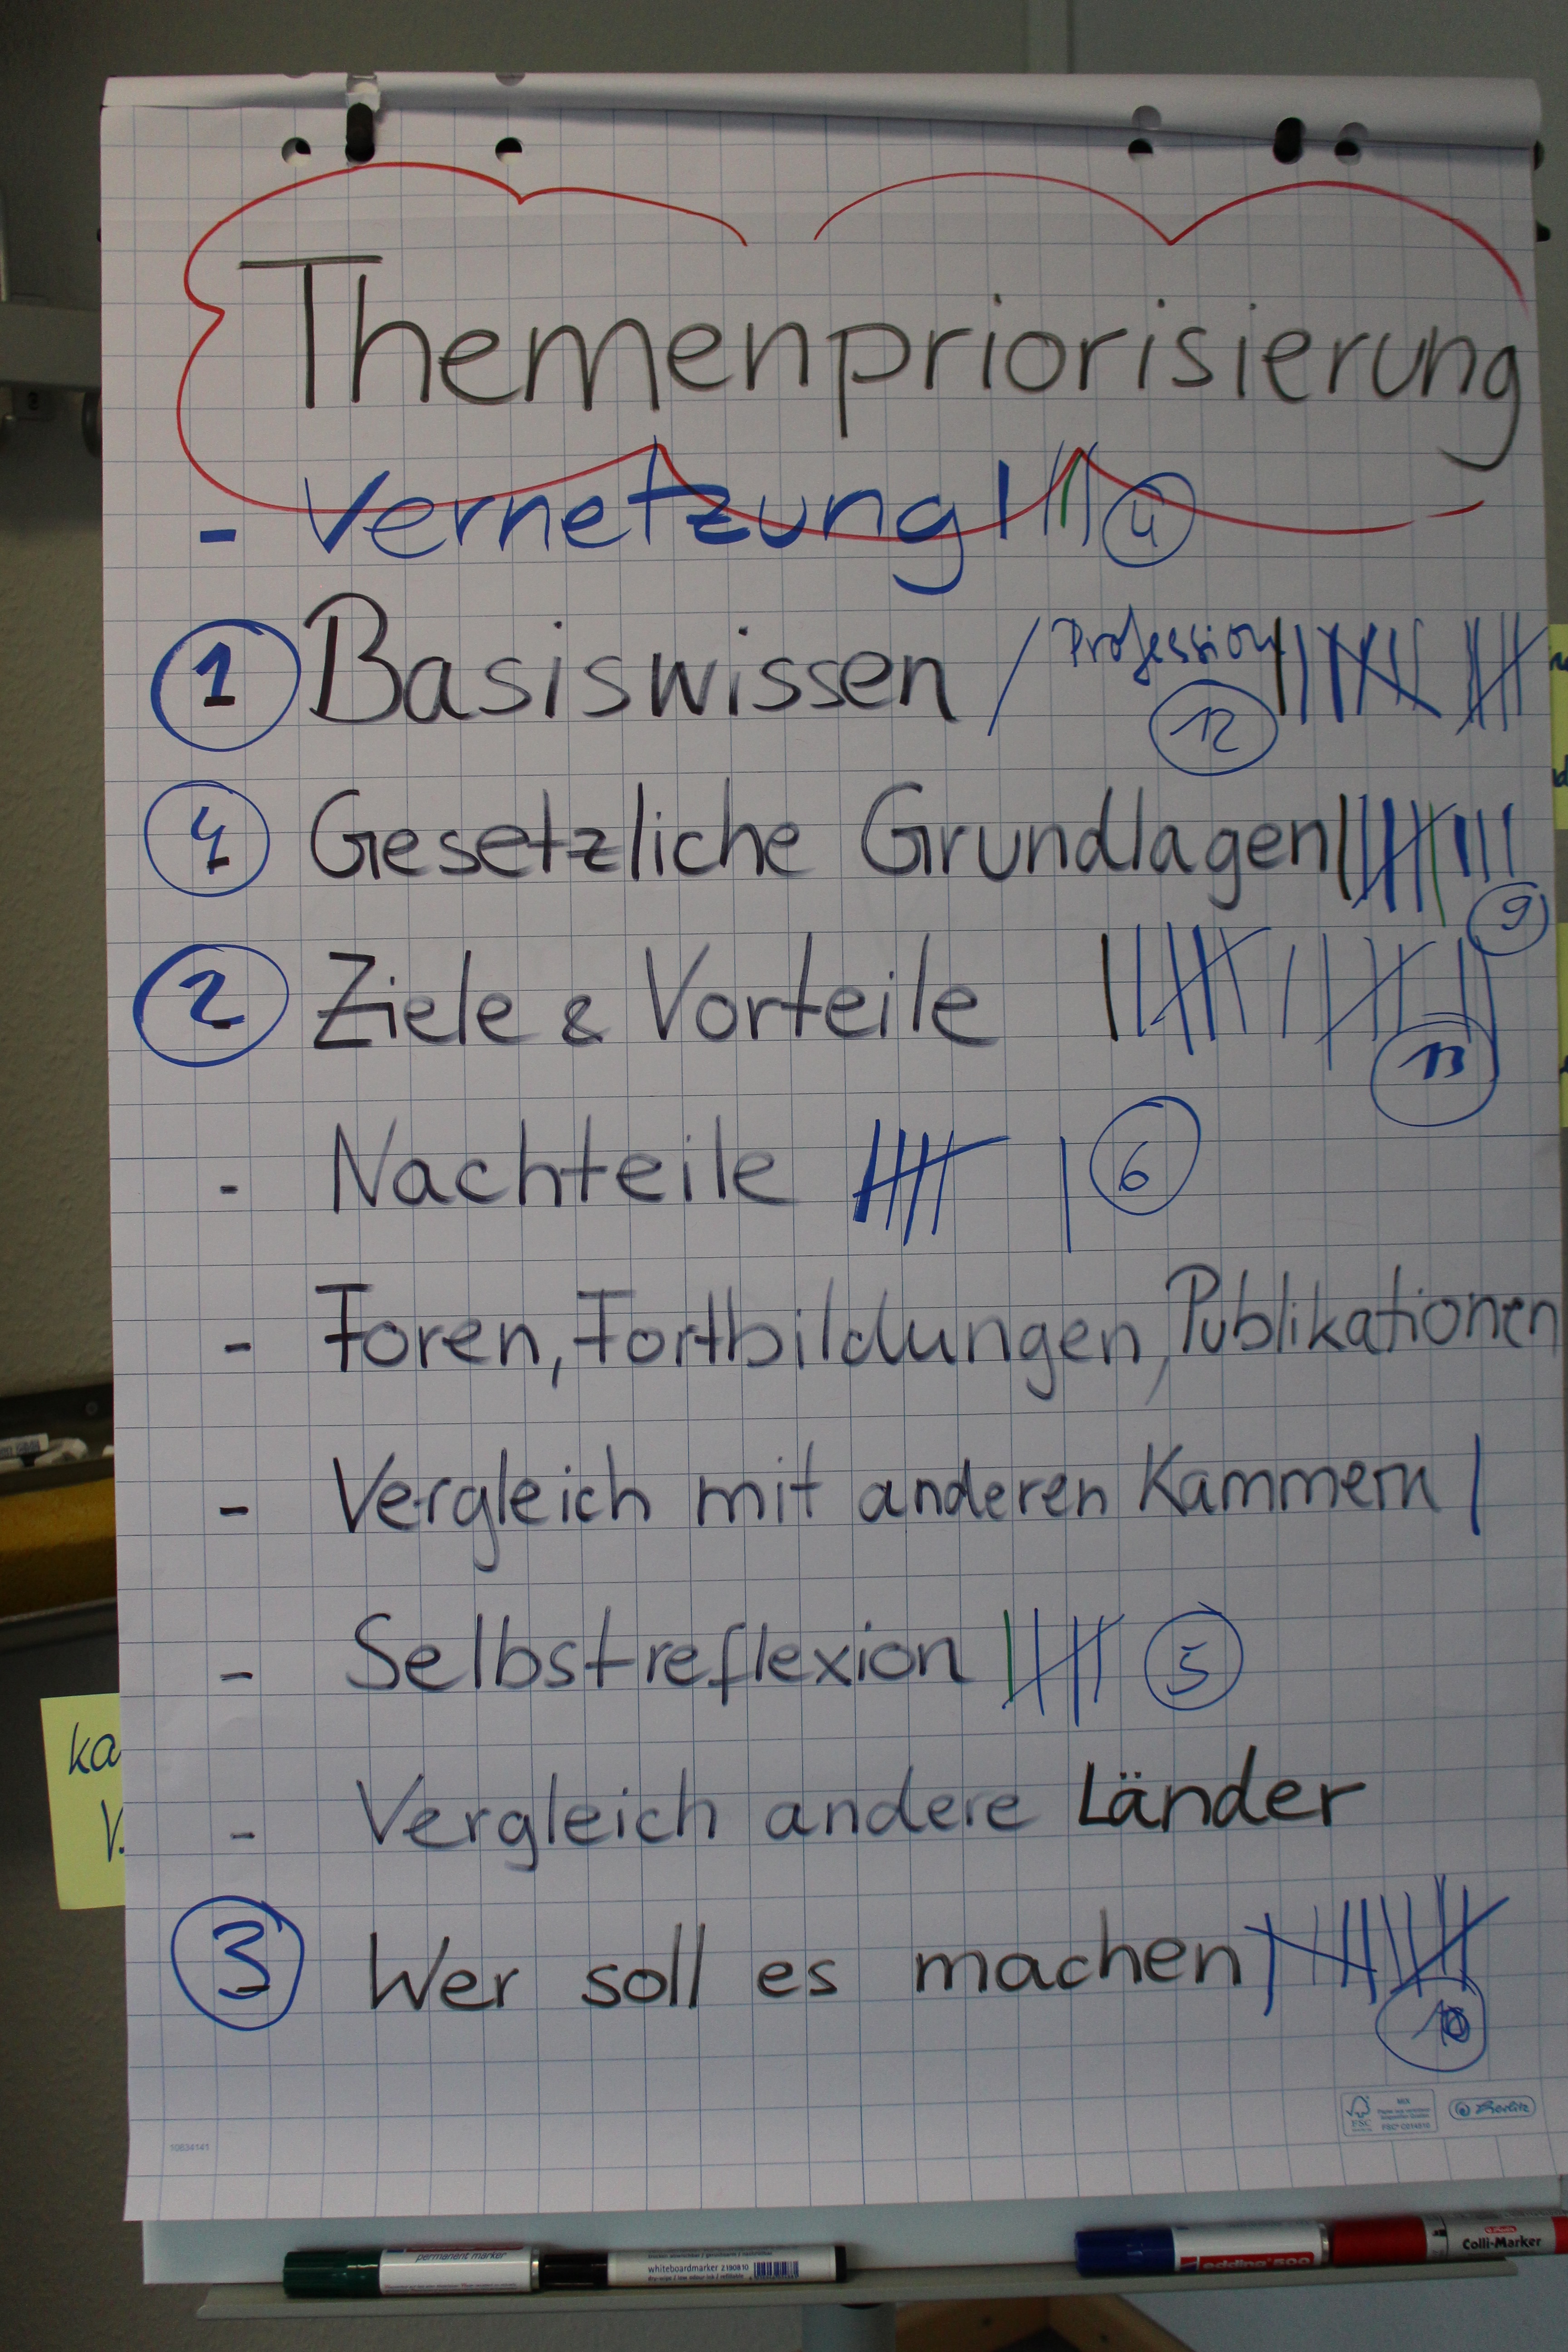 Themenpriorisierung
- Vernetzung |||| 4
1 Basiswissen / Profession 12
4 Gesetzliche Grundlagen 9
2 Ziele & Vorteile 13
- Nachteile 6
- Foren, Fortbildungen, Publikationen
- Vergleich mit anderen Kammern |
- Selbstreflexion 5
- Vergleich andere Länder
3 Wer soll es machen 10
ka
V.
MIX
FSC
FSC® C014510
Herlitz
10634141
permanent marker
whiteboardmarker 2190810
edding 500
Colli-Marker